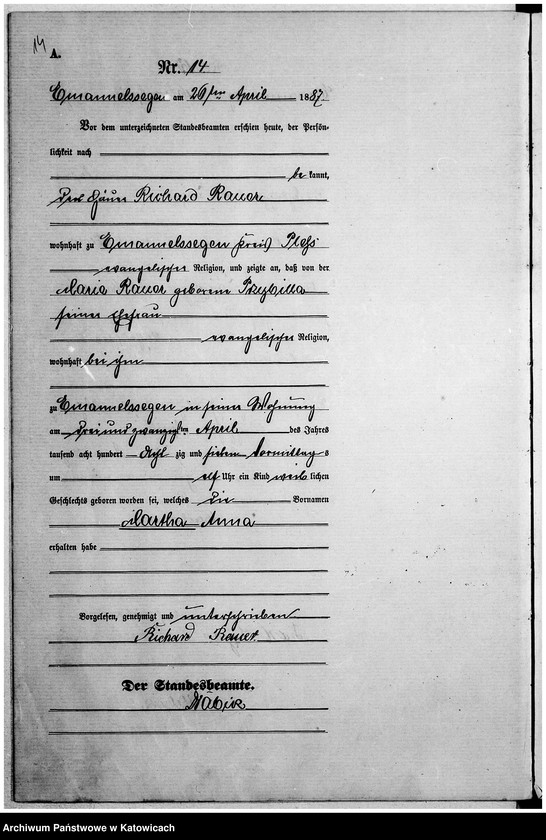 14
A.
Nr. 14
Emanuelssegen am 26ten April 1887.
Vor dem unterzeichneten Standesbeamten erschien heute, der Persön-
lichkeit nach
be kannt,
Richard Rauer
wohnhaft zu Emanuelssegen Kreis Pleß
evangelischer Religion, und zeigte an, daß von der
Maria Rauer geborene Przybilla
seiner Ehefrau
evangelischer Religion,
wohnhaft bei ihm
zu Emanuelssegen in seiner Wohnung
am drei und zwanzigsten April des Jahres
tausend acht hundert Acht zig und sieben Vormittags
um elf Uhr ein Kind weib lichen
Geschlechts geboren worden sei, welches die Vornamen
Martha Anna
erhalten habe
Vorgelesen, genehmigt und unterschrieben
Richard Rauer
Der Standesbeamte.
Archiwum Państwowe w Katowicach